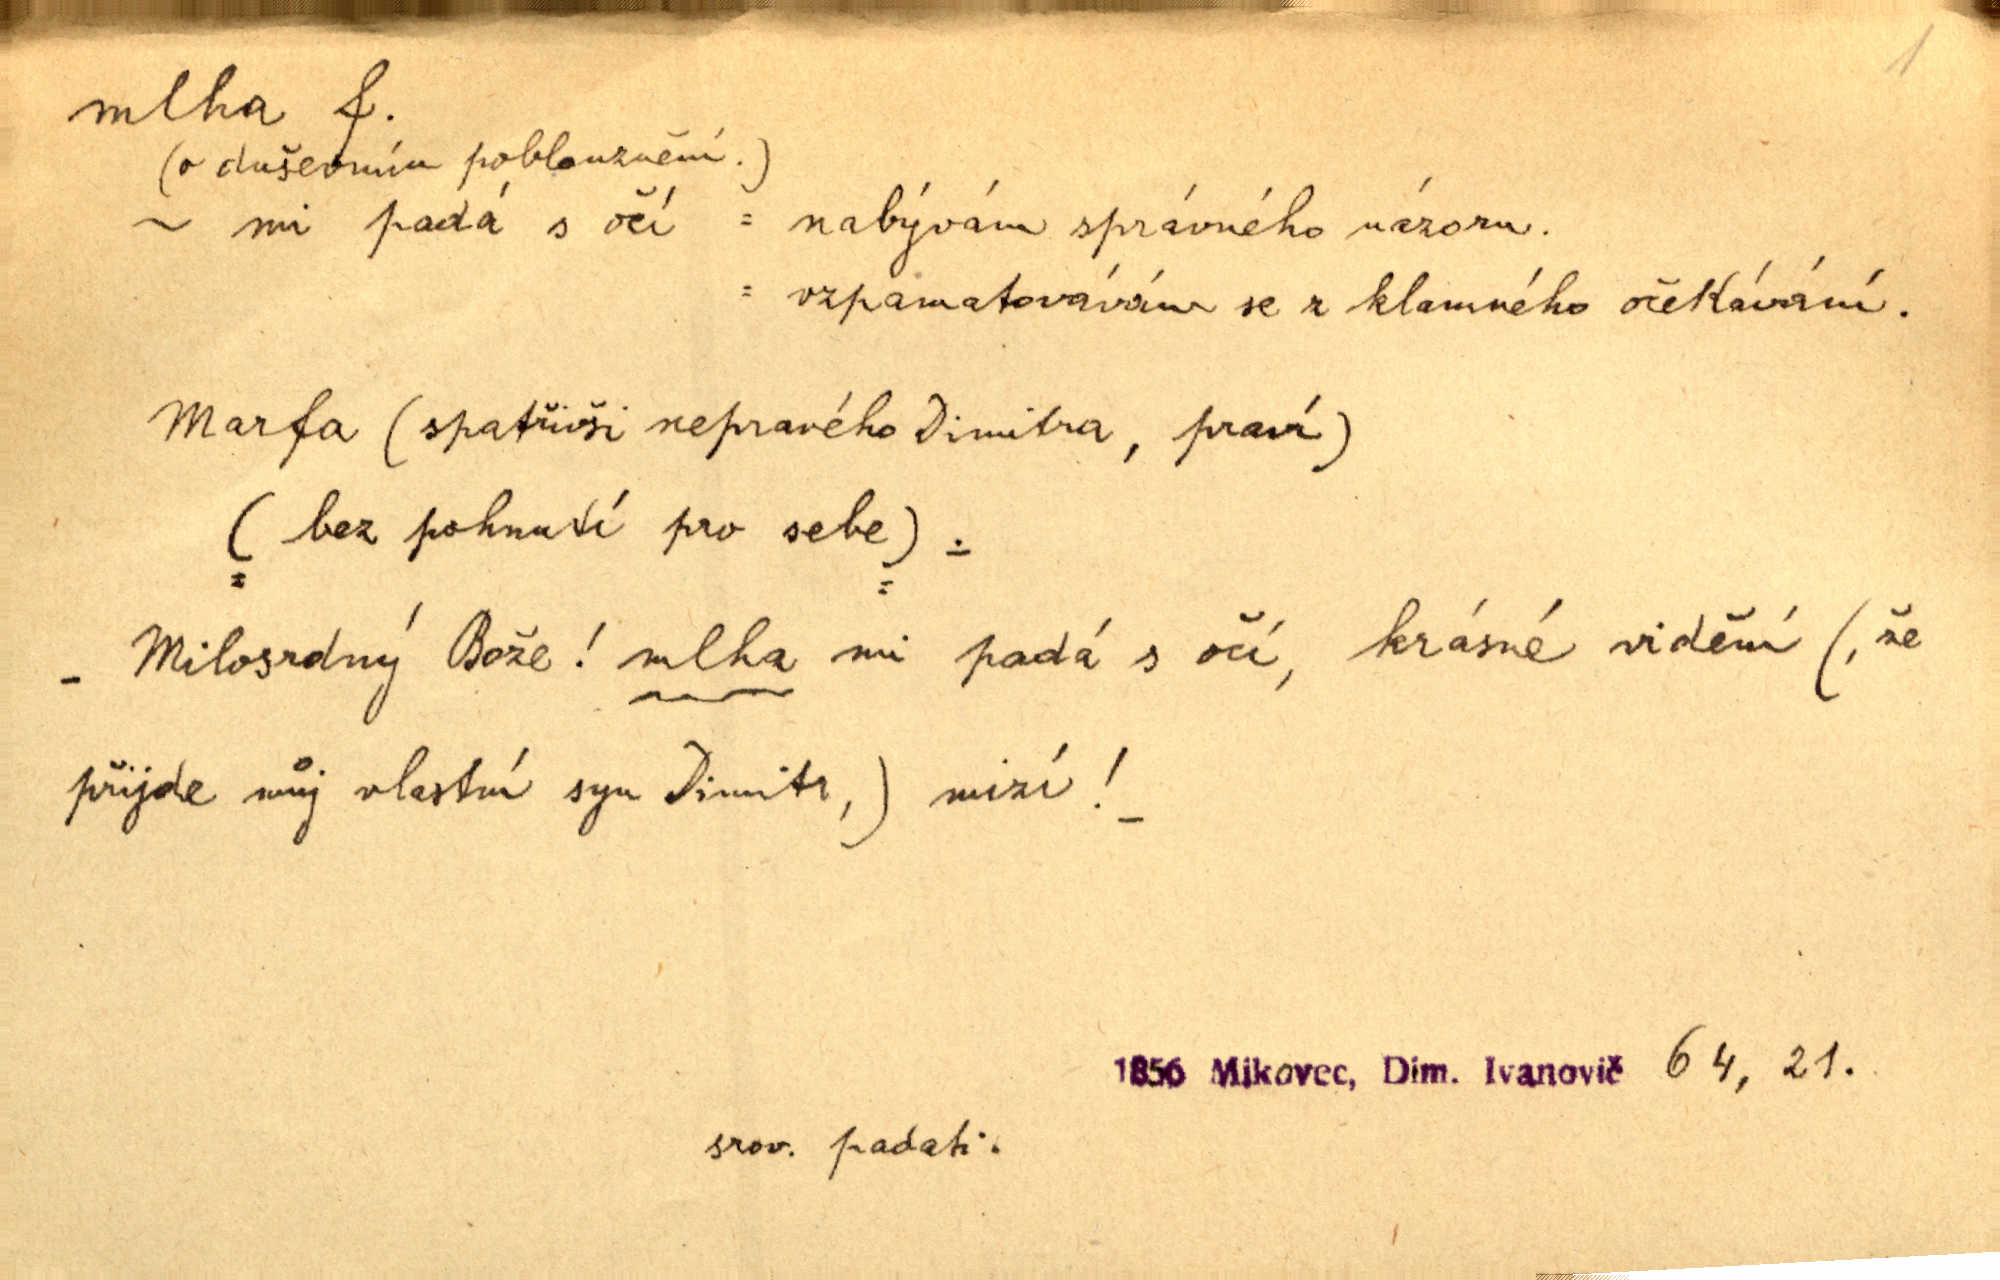 1
mlha f.
(o duševním poblouznění.)
~ mi padá s očí = nabývám správného názoru.
= vzpamatovávám se z klamného očekávání.
Marfa (spatřivši nepravého Dimitra, praví)
(bez pohnutí pro sebe).
- Milosrdný Bože! mlha mi padá s očí, krásné vidění (, že
přijde můj vlastní syn Dimitr,) mizí! -
1856 Mikovec, Dim. Ivanovič 64, 21.
srov. padati.